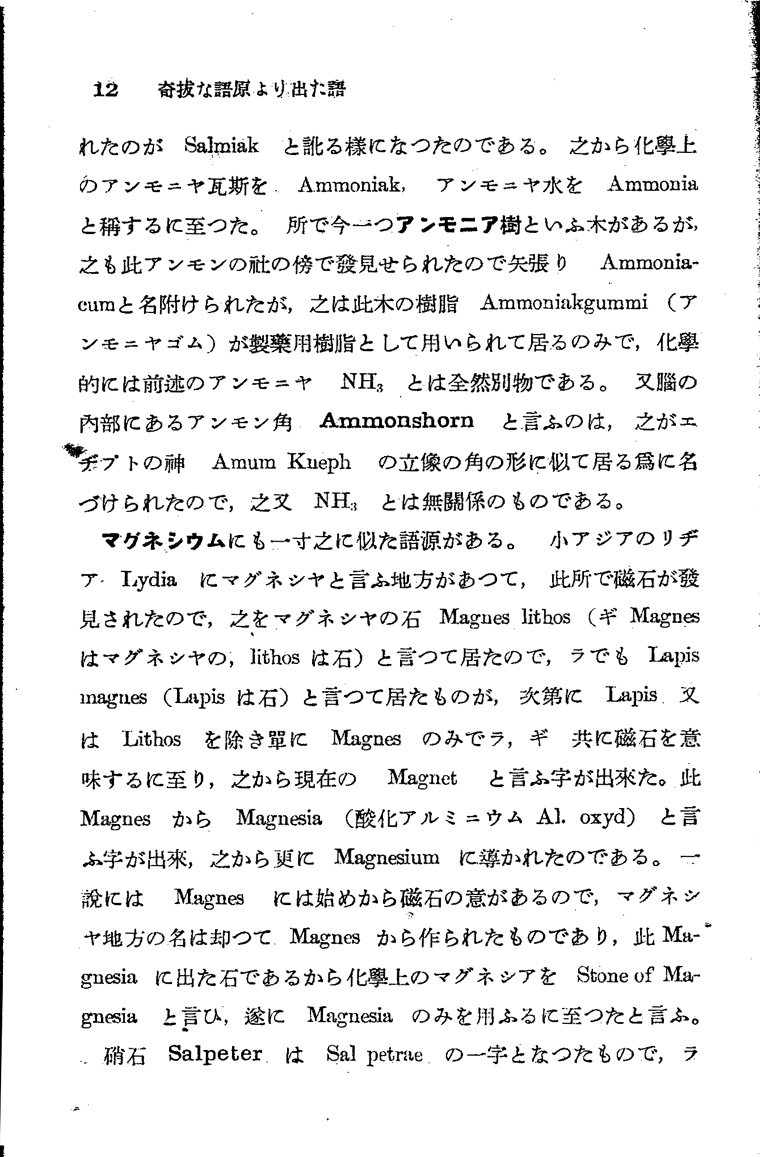 12 奇拔な語原より出た語
れたのが Salmiak と訛る樣になつたのである。 之から化學上
のアンモニヤ瓦斯を Ammoniak, アンモニヤ水を Ammonia
と稱するに至つた。 所で今一つアンモニア樹といふ木があるが,
之も此アンモンの社の傍で發見せられたので矢張り Ammonia-
cumと名附けられたが, 之は此木の樹脂 Ammoniakgummi (ア
ンモニヤゴム) が製藥用樹脂として用いられて居るのみで, 化學
的には前述のアンモニヤ NH₃ とは全然別物である。 又腦の
內部にあるアンモン角 Ammonshorn と言ふのは, 之がエ
ヂプトの神 Amum Kneph の立像の角の形に似て居る爲に名
づけられたので, 之又 NH₃ とは無關係のものである。
マグネシウムにも一寸之に似た語源がある。 小アジアのリヂ
ア Lydia にマグネシヤと言ふ地方があつて, 此所で磁石が發
見されたので, 之をマグネシヤの石 Magnes lithos (ギ Magnes
はマグネシヤの, lithos は石) と言つて居たので, ラでも Lapis
magnes (Lapis は石) と言つて居たものが, 次第に Lapis 又
は Lithos を除き單に Magnes のみでラ, ギ 共に磁石を意
味するに至り, 之から現在の Magnet と言ふ字が出來た。此
Magnes から Magnesia (酸化アルミニウム Al. oxyd) と言
ふ字が出來, 之から更に Magnesium に導かれたのである。 一
說には Magnes には始めから磁石の意があるので, マグネシ
ヤ地方の名は却つて Magnes から作られたものであり, 此 Ma-
gnesia に出た石であるから化學上のマグネシアを Stone of Ma-
gnesia と言ひ, 遂に Magnesia のみを用ふるに至つたと言ふ。
硝石 Salpeter は Sal petrae の一字となつたもので, ラ